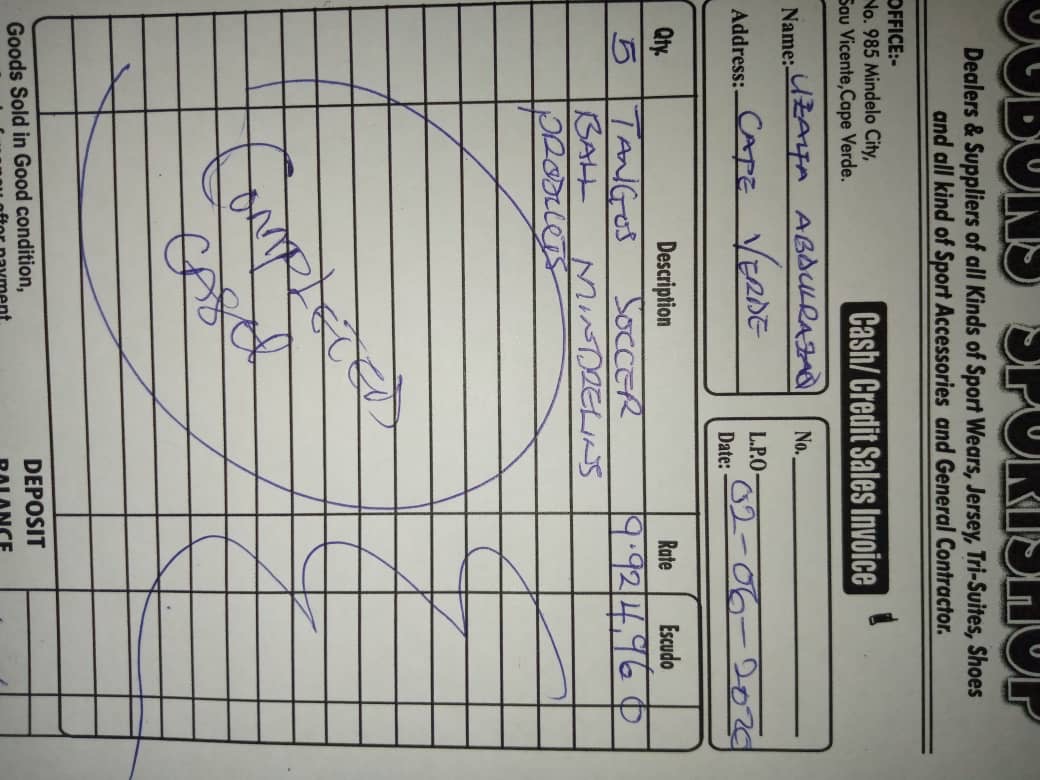 SPORTISHOP
Dealers & Suppliers of all Kinds of Sport Wears, Jersey, Tri-Suites, Shoes
and all kind of Sport Accessories and General Contractor.
OFFICE:-
No. 985 Mindelo City,
Sau Vicente,Cape Verde.
Cash/ Credit Sales Invoice
Name:-
Address:- CAPE VERDE
No.
L.P.O
Date: 02-06-
Qty. Description Rate Escudo
5 TANGOS SOCCER 9.924,960
BALL
PRODUCTS
COMPLETED
Goods Sold in Good condition,
after payment
DEPOSIT
BALANCE